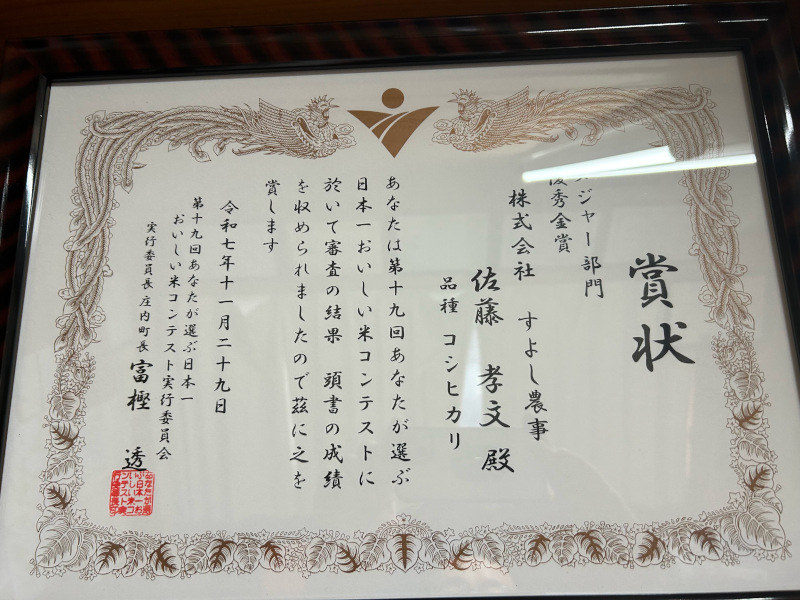 賞状
ジャー部門
優秀金賞
株式会社 すよし農事
佐藤 孝文 殿
品種 コシヒカリ
あなたは第十九回あなたが選ぶ
日本一おいしい米コンテストに
於いて審査の結果 頭書の成績
を収められましたので茲に之を
賞します
令和七年十一月二十九日
第十九回あなたが選ぶ日本一
おいしい米コンテスト実行委員会
実行委員長 庄内町長 富樫 透